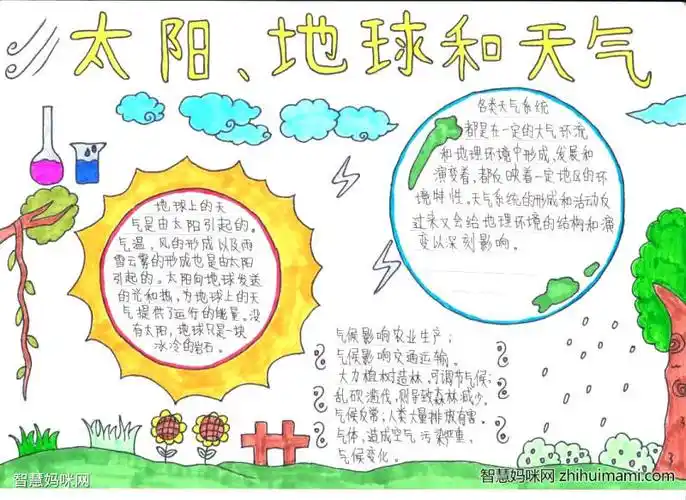 太阳、地球和天气
地球上的天
气是由太阳引起的。
气温,风的形成以及雨
雪云雾的形成也是由太阳
引起的。太阳向地球发送
的光和热,为地球上的天
气提供了运行的能量。没
有太阳,地球只是一块
冰冷的岩石。
各类天气系统
都是在一定的大气环流
和地理环境中形成,发展和
演变着,都反映着一定地区的环
境特性。天气系统的形成和活动反
过来又会给地理环境的结构和演
变以深刻影响。
气候影响农业生产;
气候影响交通运输。
大力植树造林,可调节气候;
乱砍滥伐,则导致森林减少,
气候反常;人类大量排放有害
气体,造成空气污染严重,
气候变化。
智慧妈咪网
智慧妈咪网 zhihuimami.com